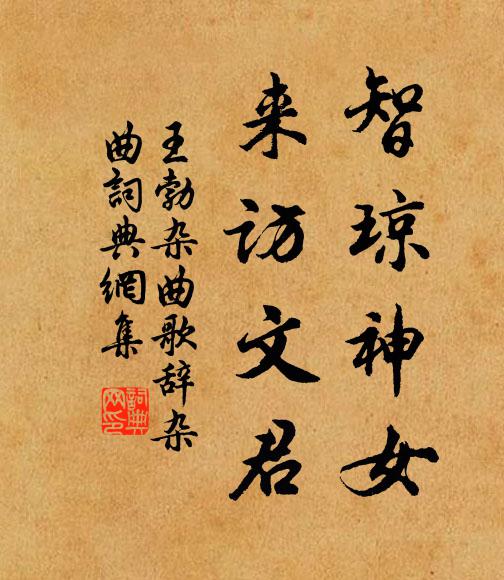 智琼神女
来访文君
王勃杂曲歌辞杂
曲詞典網集
詞典
网印